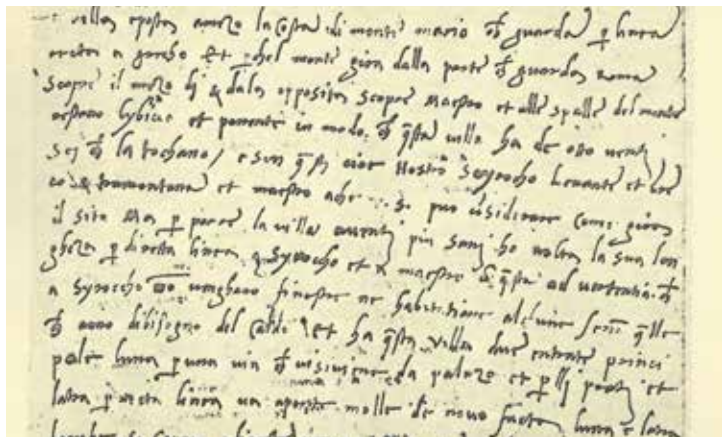 villa e posta a mezo la costa di monte mario ch guarda p linea
recta a grecho et pchel monte gira dalla parte ch guarda roma
scopre il mezo dj & dala opposita scopre Maestro et alle spalle del monte
restano lybicio et ponente in modo ch qsta villa ha de otto venti
sej ch la tochano / e son qsti cioe Hostro Syrocho Levante et Gre
co & tramontana et maestro ache si puo cōsiderare come gira
il sito Ma p porre la villa aventj piu sanj ho volta la sua lon
gheza p diretta linea a Syrocho et a maestro cō qsta advertentia ch
a Syrocho nō venghano finestre ne habitatione alchune senō qlle
ch anno dibisogno del caldo Et ha qsta villa due entrate princi
pale luna p una via ch visiviene da palazo et p llj pratj et
latra p recta linea va aponte molle de novo facta luna e latra